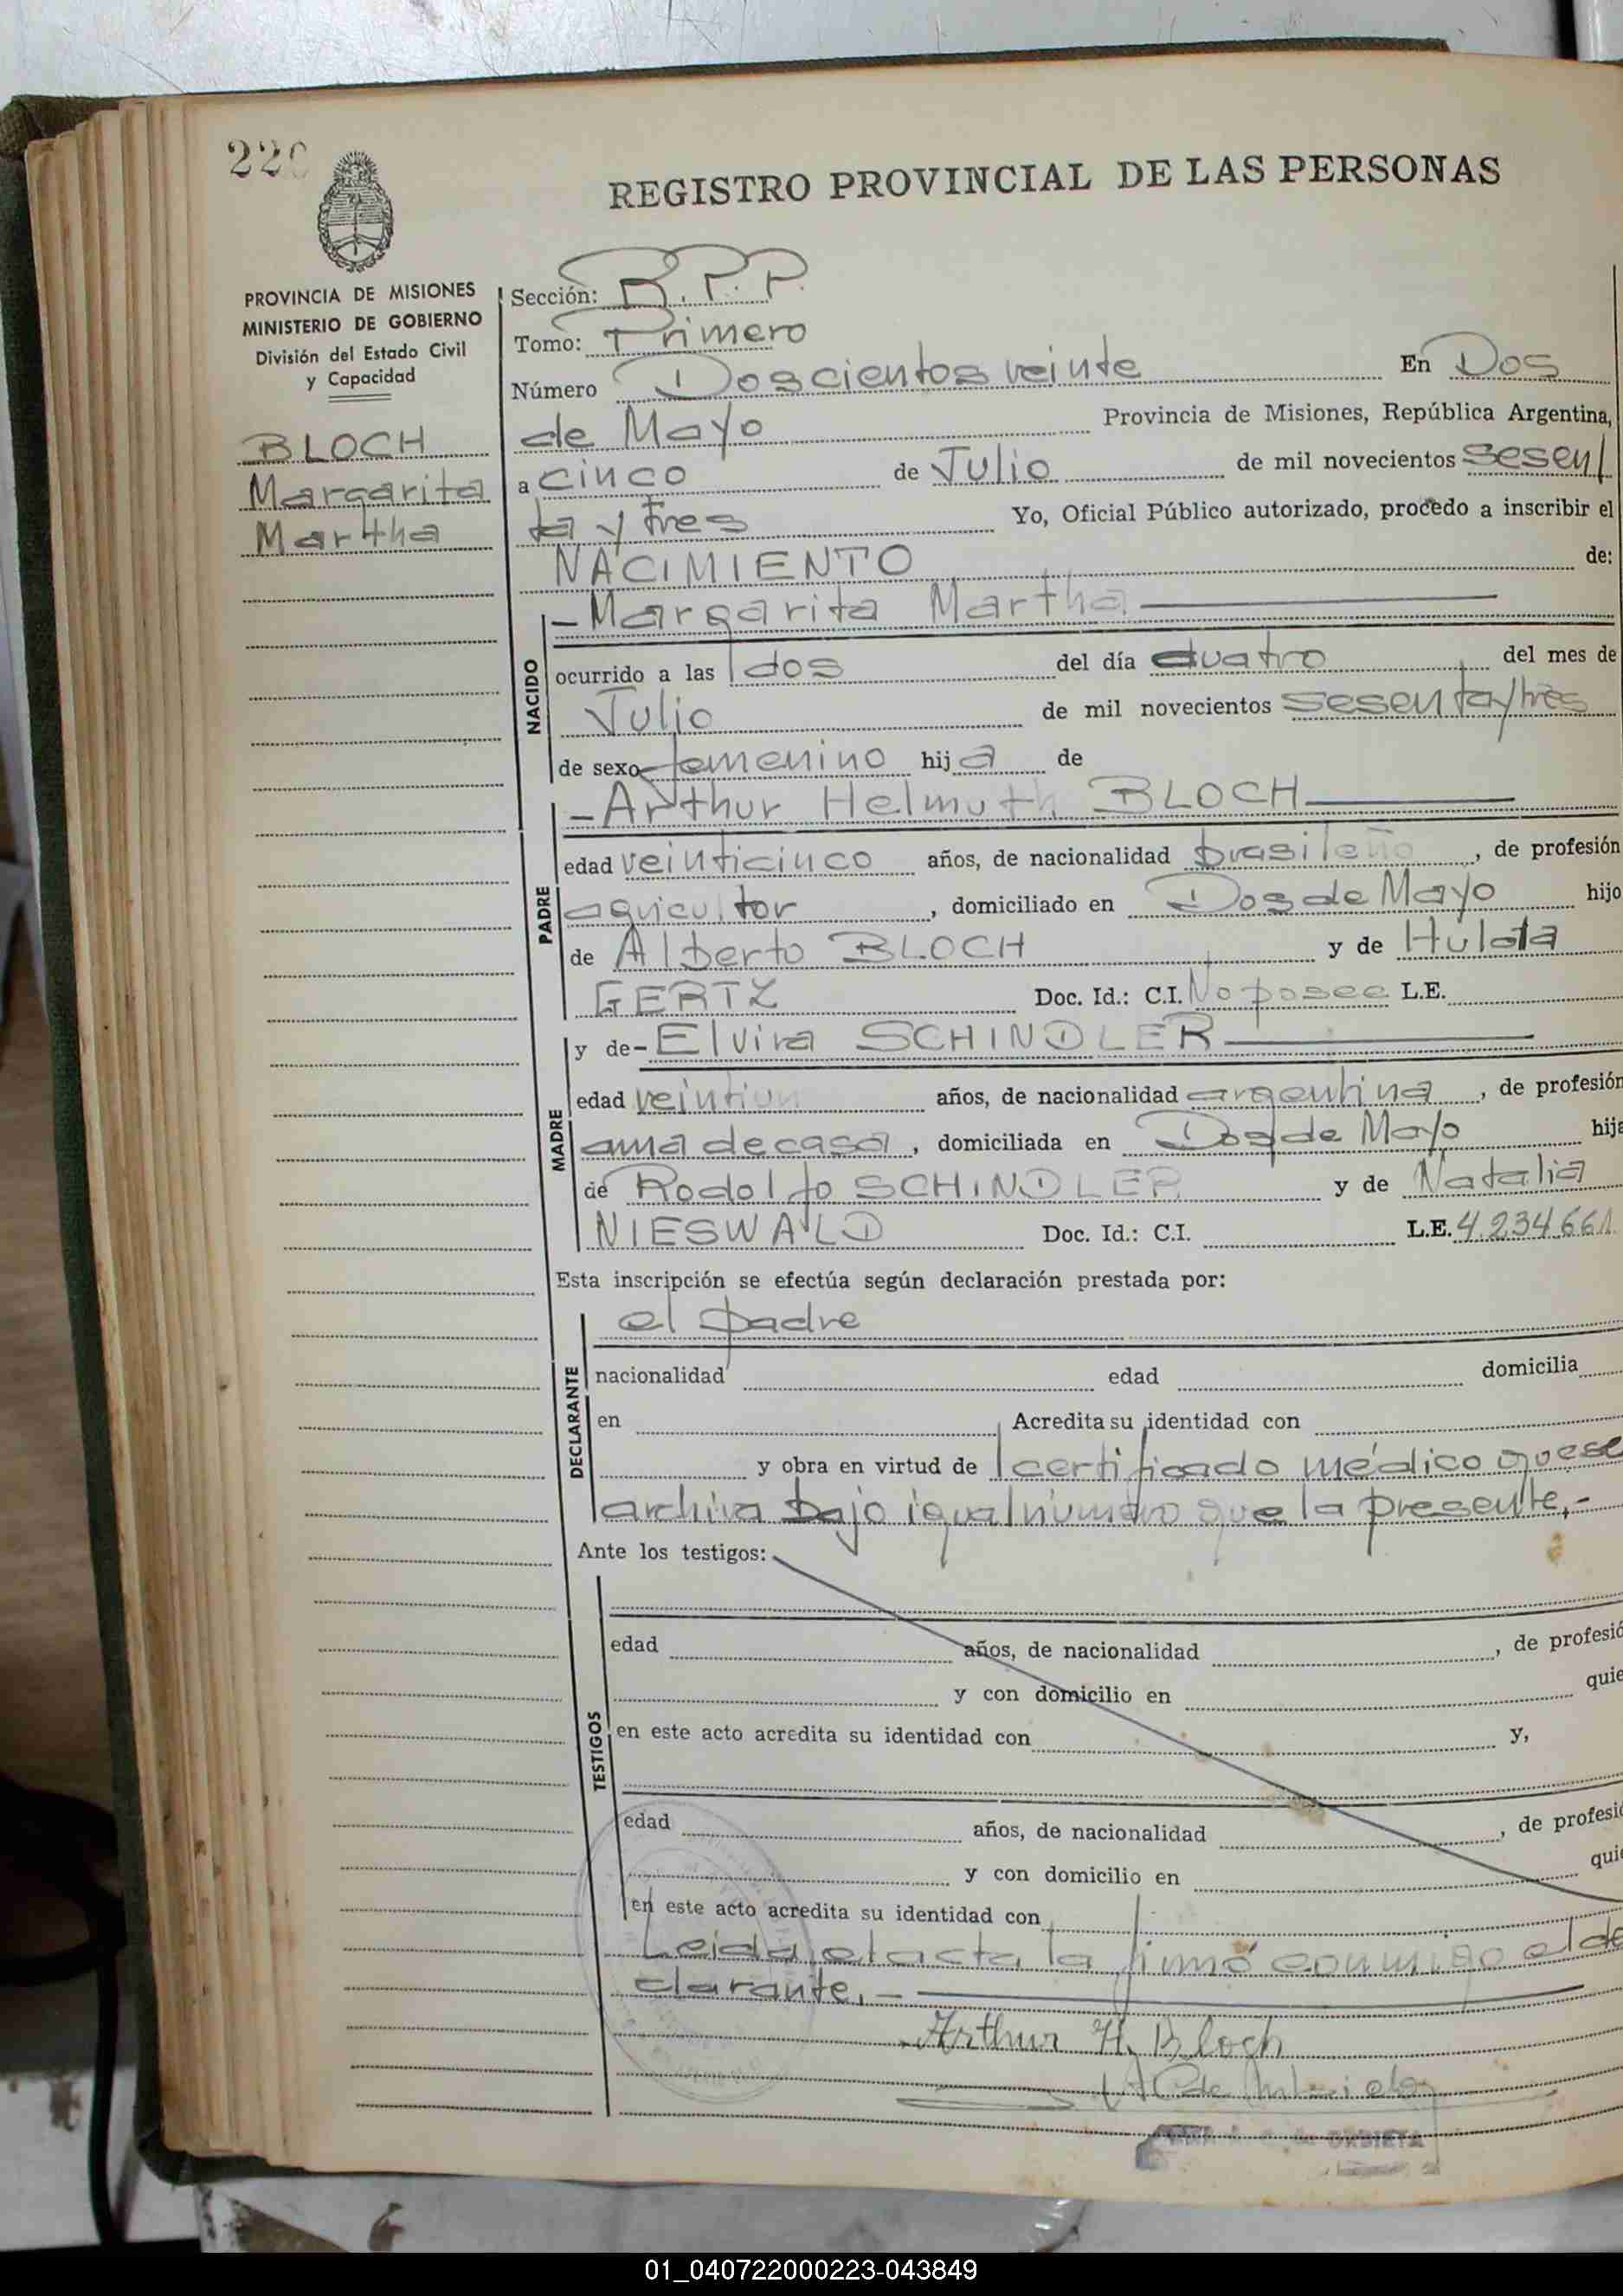 220
REGISTRO PROVINCIAL DE LAS PERSONAS
PROVINCIA DE MISIONES
MINISTERIO DE GOBIERNO
División del Estado Civil
y Capacidad
BLOCH
Margarita
Martha
Sección: B.P.P.
Tomo: Primero
Número Doscientos veinte En Dos
de Mayo Provincia de Misiones, República Argentina,
a cinco de Julio de mil novecientos sesen
ta y tres Yo, Oficial Público autorizado, procedo a inscribir el
NACIMIENTO de:
NACIDO
- Margarita Martha
ocurrido a las dos del día cuatro del mes de
Julio de mil novecientos sesenta y tres
de sexo femenino hija de
PADRE
- Arthur Helmuth BLOCH
edad veinticinco años, de nacionalidad brasileño, de profesión
agricultor, domiciliado en Dos de Mayo hijo
de Alberto BLOCH y de Hulda
GERTZ Doc. Id.: C.I. No posee L.E.
MADRE
y de - Elvira SCHINDLER
edad veintiun años, de nacionalidad argentina, de profesión
ama de casa, domiciliada en Dos de Mayo hija
de Rodolfo SCHINDLER y de Natalia
NIESWALD Doc. Id.: C.I. L.E. 4.234.661
Esta inscripción se efectúa según declaración prestada por:
DECLARANTE
el padre
nacionalidad edad domicilia
en Acredita su identidad con
y obra en virtud de certificado médico que se
archiva bajo igual número que la presente.-
Ante los testigos:
TESTIGOS
edad años, de nacionalidad , de profesió
y con domicilio en quie
en este acto acredita su identidad con y,
edad años, de nacionalidad , de profesió
y con domicilio en quie
en este acto acredita su identidad con
Leída el acta la firmó conmigo el de
clarante.-
Arthur H. Bloch
URBIETA
01_040722000223-043849